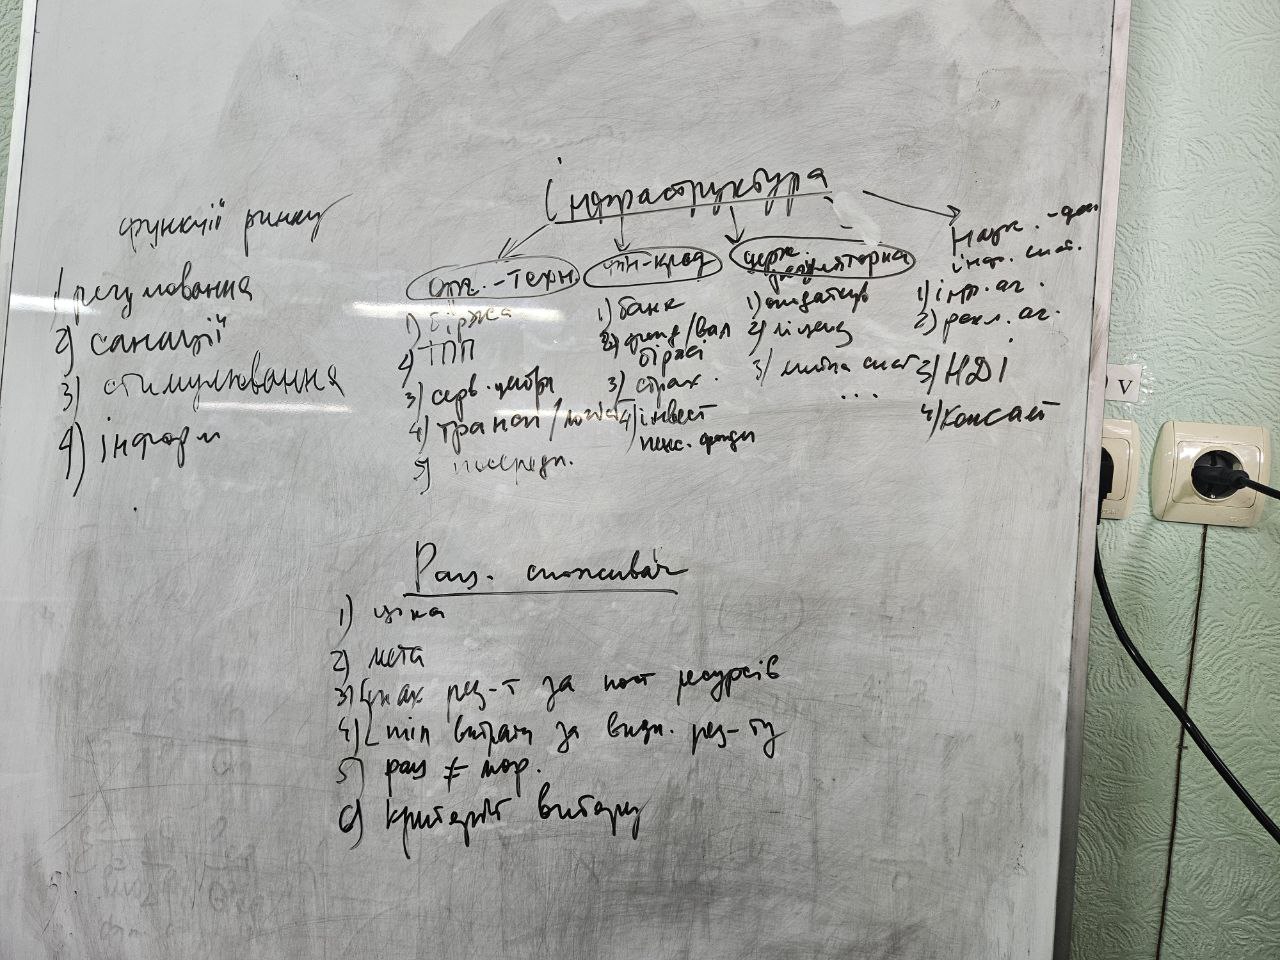 Інфраструктура
функції ринку
1) регулювання
2) санації
3) стимулювання
4) інформ
орг.-техн.
1) біржа
2) ТПП
3) серв. центри
4) трансп/логіст
5) посередн.
фін-кред
1) банк
2) фонд/вал
біржі
3) страх.
4) інвест
пенс. фонди
держ
регуляторна
1) оподаткув
2) ліценз
3) митна сист
...
Наук.-досл
інф. сист.
1) інф. аг.
2) рекл. аг.
3) НДІ
4) консалт
V
Рац. споживач
1) ціна
2) мета
3) max рез-т за пост ресурсів
4) min витрати за визн. рез-ту
5) рац ≠ мор.
6) критерії вибору